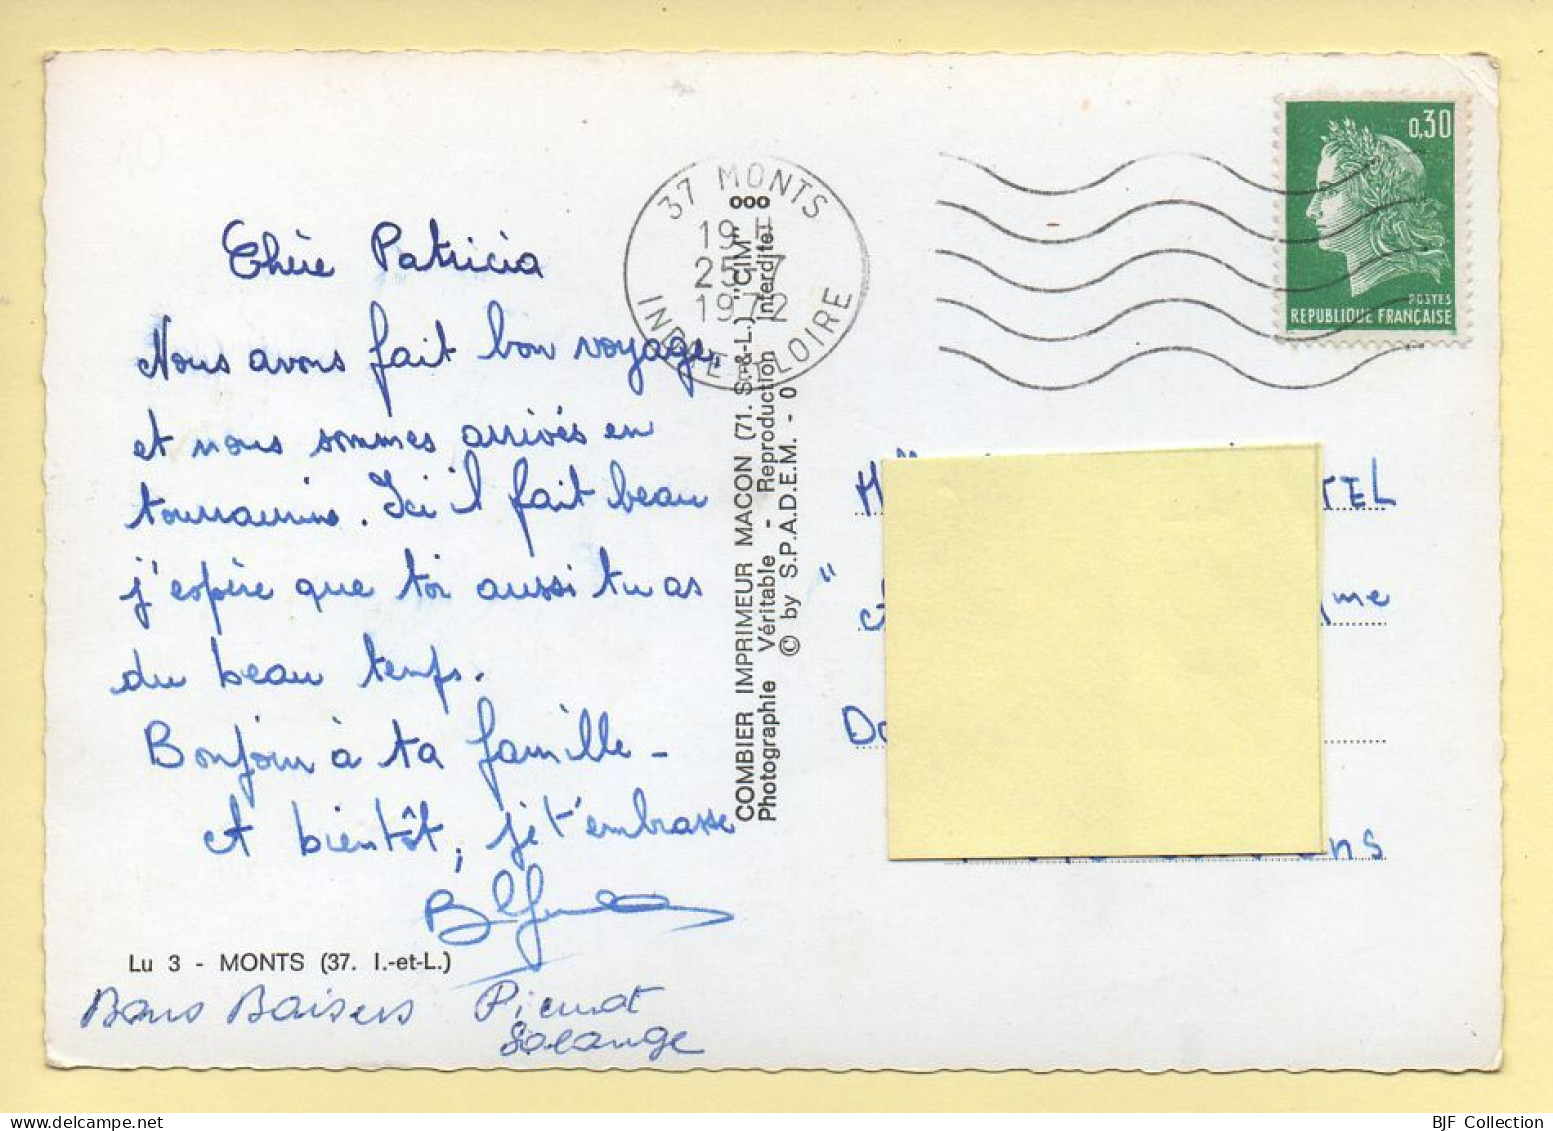 Chère Patricia
Nous avons fait bon voyage,
et nous sommes arrivés en
. Ici il fait beau
j'espère que toi aussi tu as
du beau temps.
Bonjour à ta famille -
A bientôt, je t'embrasse
Lu 3 - MONTS (37. I.-et-L.)
Bons Baisers
Solange
COMBIER IMPRIMEUR MACON (71. S.-&-L.) "CIM"
Photographie Véritable - Reproduction Interdite
© by S.P.A.D.E.M. - 0
37 MONTS
19 H
25-7
1972
INDRE ET LOIRE
0,30
POSTES
REPUBLIQUE FRANÇAISE
TEL
me
ns
BJF Collection